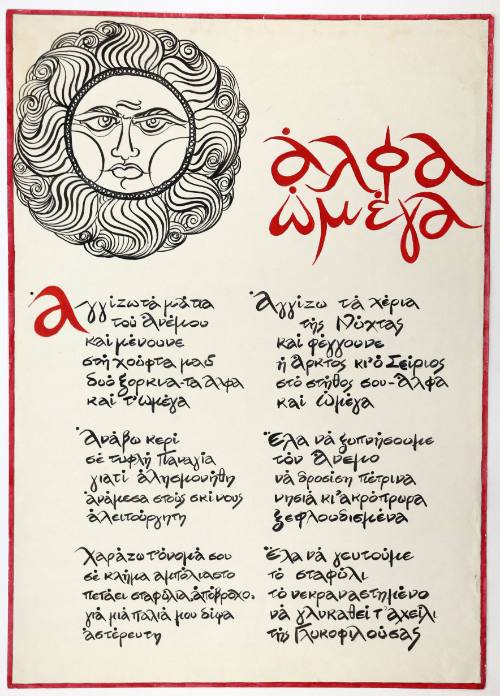 ἀλφα
ὠμέγα
Ἀγγίζω τὰ μάτια
τοῦ Ἀνέμου
καὶ μένουνε
στὴ χούφτα μας
δυὸ ξόρκια-τὰ ἄλφα
καὶ τ' ὠμέγα
Ἀνάβω κερὶ
σὲ τυφλὴ Παναγία
γιατὶ ἀλησμονήθη
ἀνάμεσα στοὺς σκίνους
ἀλειτούργητη
Χαράζω τ' ὄνομά σου
σὲ κλῆμα ἀμπόλιαστο
πετάει σταφύλια, ἀπόβροχο,
γιὰ μιὰ παλιά μου δίψα
ἀστέρευτη
Ἀγγίζω τὰ χέρια
τῆς Νύχτας
καὶ φέγγουνε
ἡ Ἄρκτος κι' ὁ Σείριος
στὸ στῆθος σου-Ἄλφα
καὶ Ὠμέγα
Ἔλα νὰ ξυπνήσουμε
τὸν Ἄνεμο
νὰ δροσίση πέτρινα
νησιὰ κι ἀκρόπρωρα
ξεφλουδισμένα
Ἔλα νὰ γευτοῦμε
τὸ σταφύλι
τὸ νεκραναστημένο
νὰ γλυκαθεῖ τ' ἀχείλι
τῆς Γλυκοφιλούσας